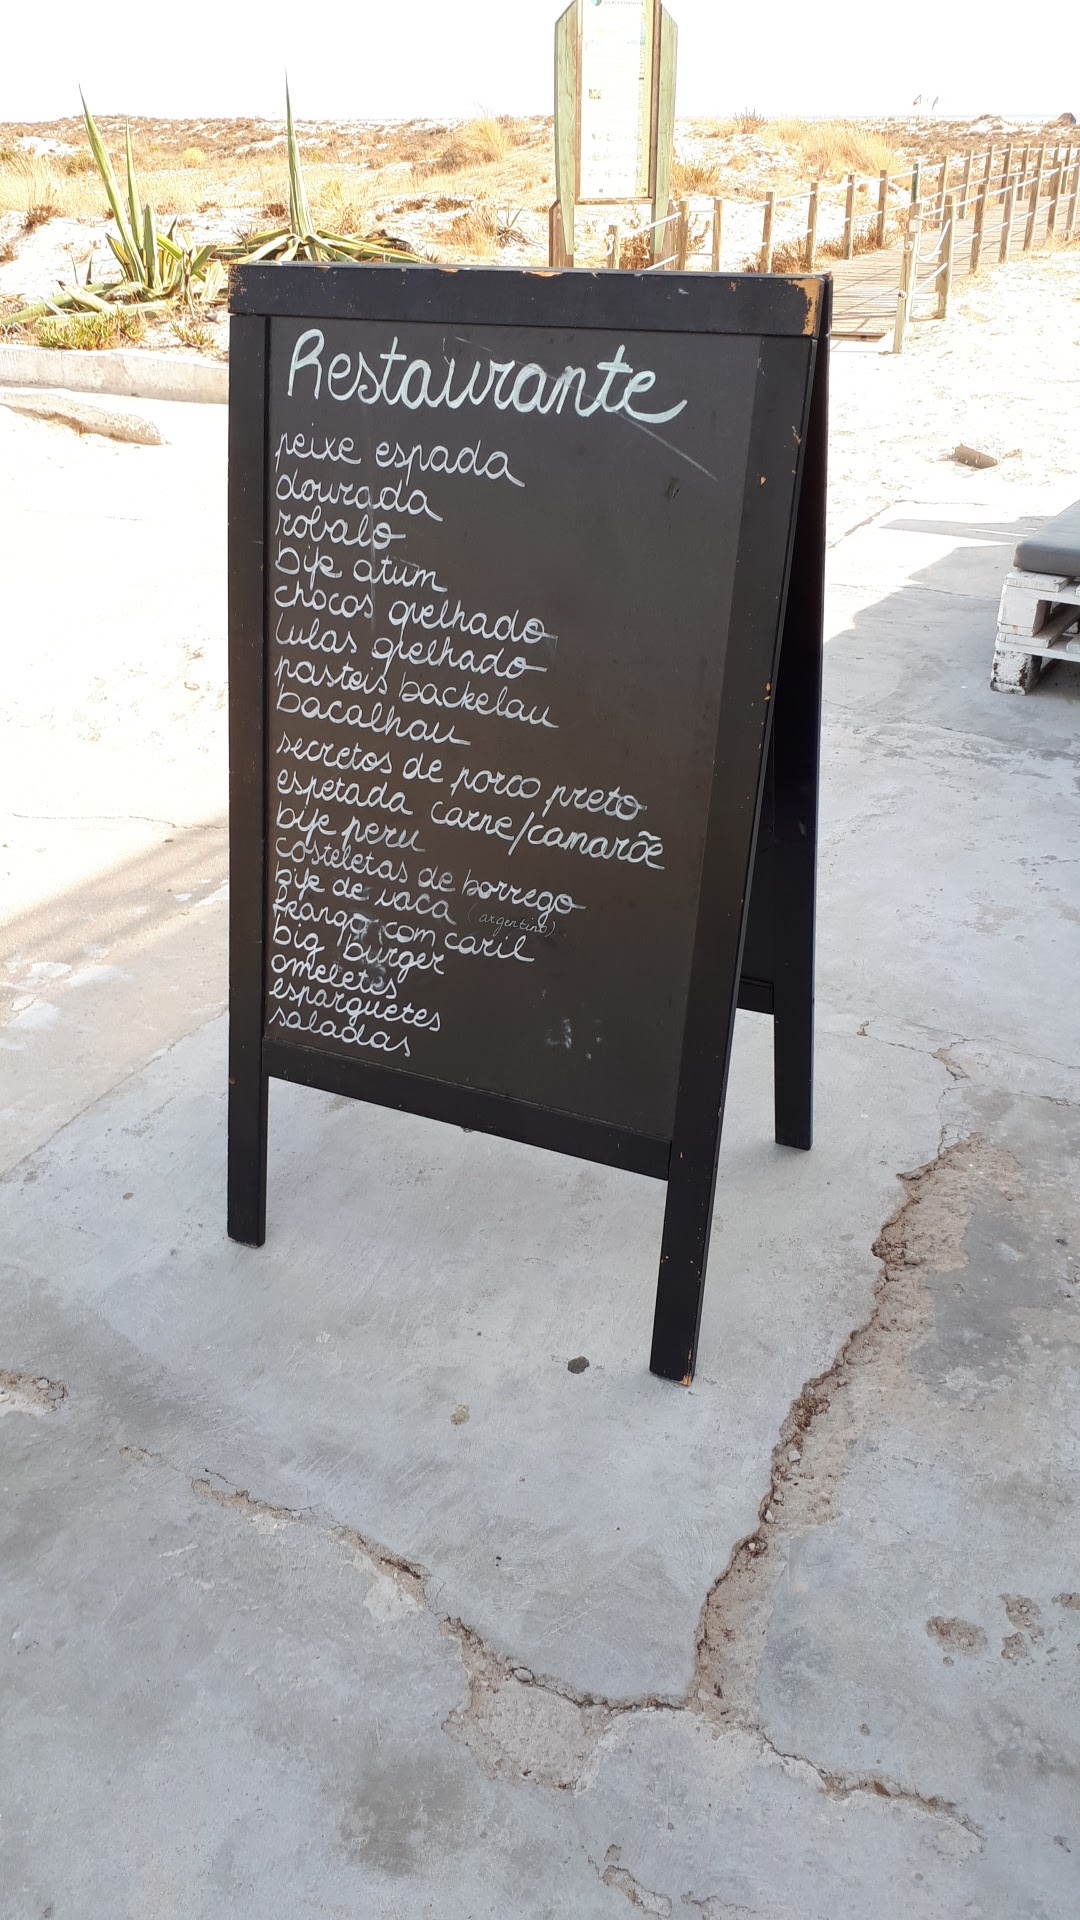 Restaurante
peixe espada
dourada
robalo
bife atum
chocos grelhado
lulas grelhado
pasteis backelau
bacalhau
secretos de porco preto
espetada carne/camarõe
bife peru
costeletas de borrego
bife de vaca (argentino)
frango com caril
big burger
omeletes
esparguetes
saladas